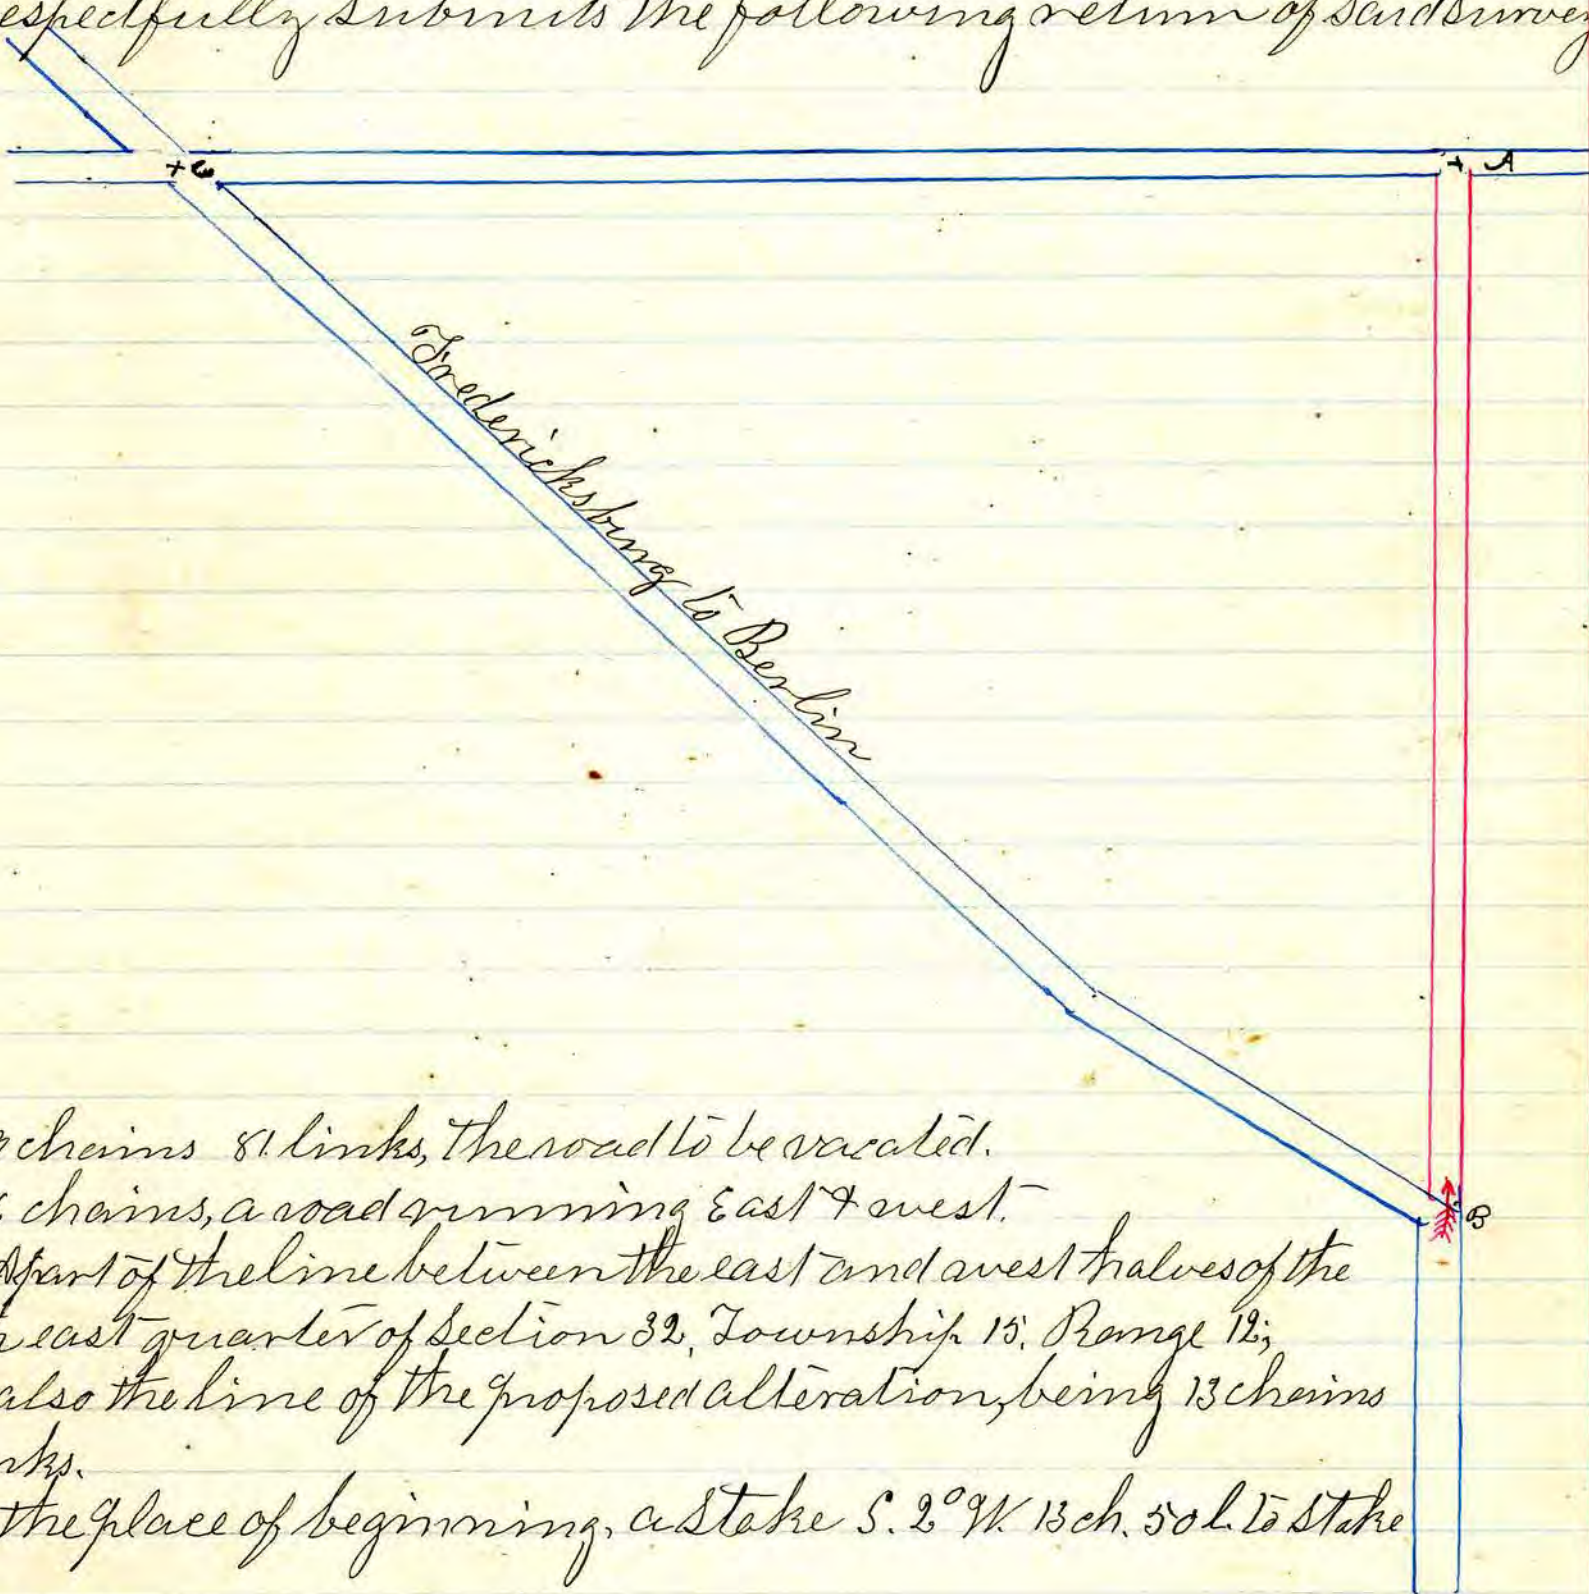 espectfully submits the following return of said survey
+ C
+ A
Fredericksburg to Berlin
B
chains 81 links, The road to be vacated.
chains, a road running East & west.
part of the line between the east and west halves of the
east quarter of Section 32, Township 15, Range 12;
also the line of the proposed alteration, being 13 chains
nks.
the place of beginning, a stake S. 2° W. 13 ch. 50 l. to stake